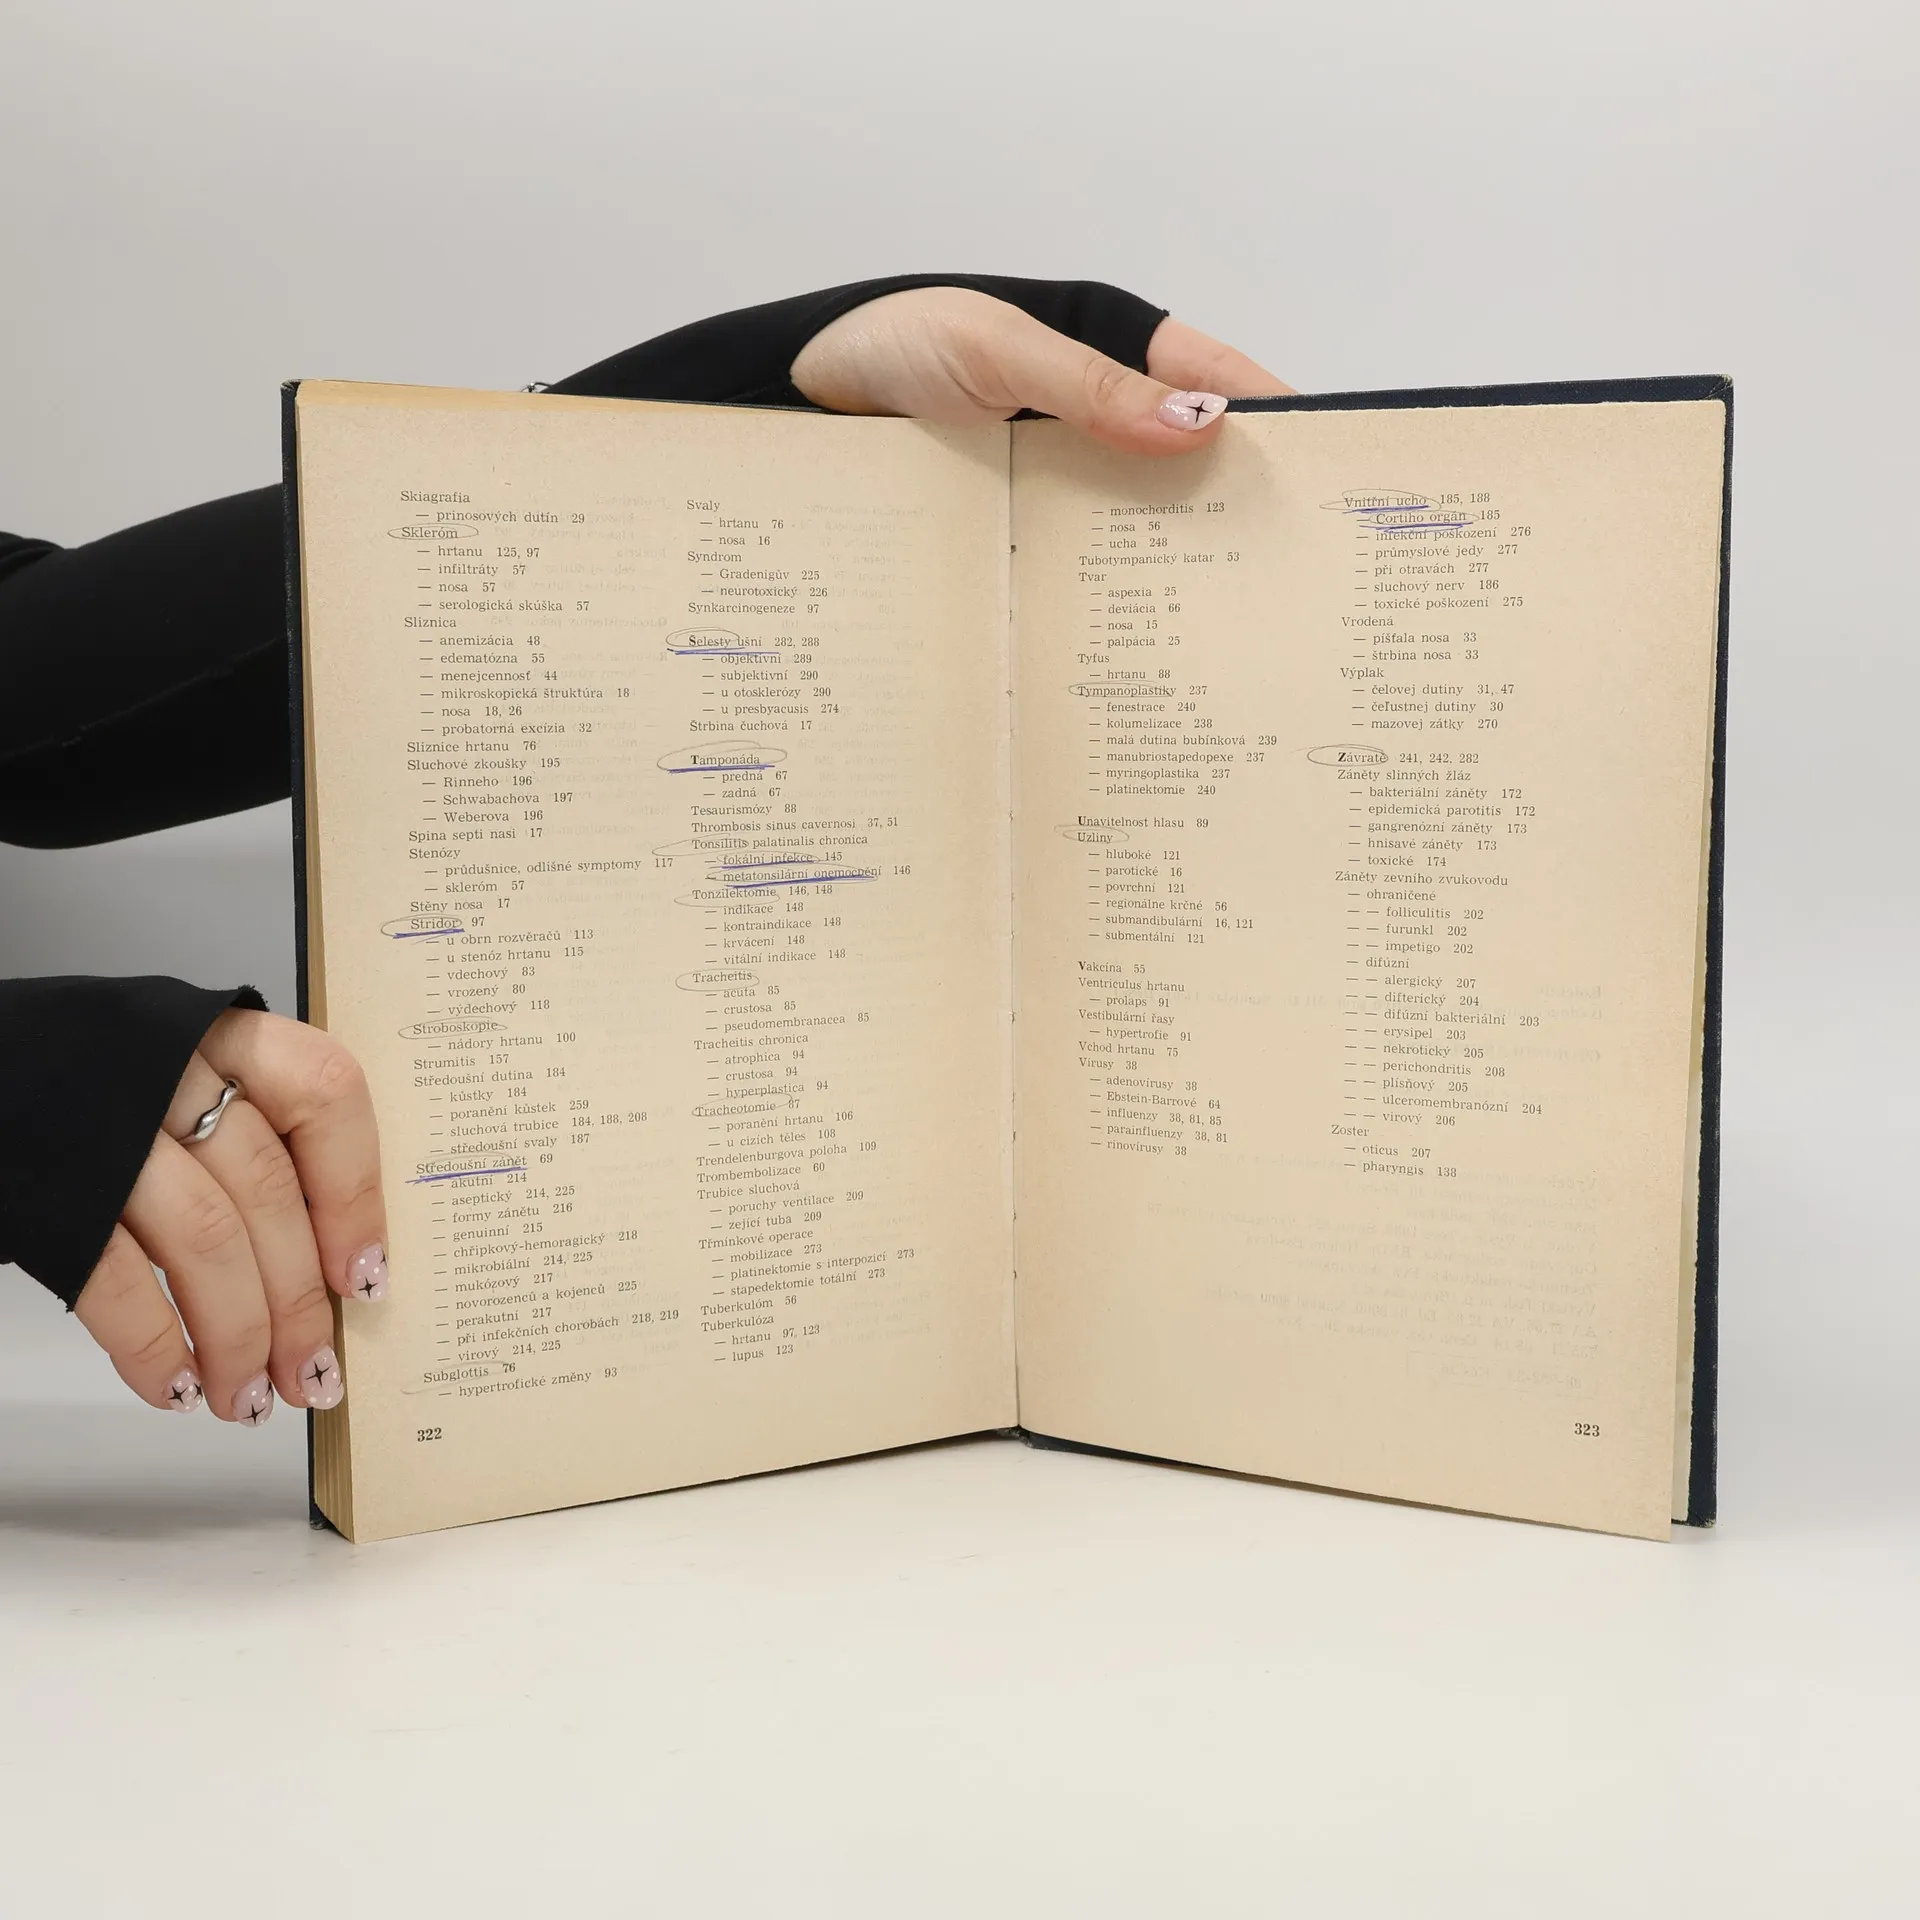 Skiagrafia
— prinosových dutín 29
Skleróm
— hrtanu 125, 97
— infiltráty 57
— nosa 57
— serologická skúška 57
Sliznica
— anemizácia 48
— edematózna 55
— menejcennosť 44
— mikroskopická štruktúra 18
— nosa 18, 26
— probatorná excízia 32
Sliznice hrtanu 76
Sluchové zkoušky 195
— Rinneho 196
— Schwabachova 197
— Weberova 196
Spina septi nasi 17
Stenózy
— průdušnice, odlišné symptomy 117
— skleróm 57
Stěny nosa 17
Stridor 97
— u obrn rozvěračů 113
— u stenóz hrtanu 115
— vdechový 83
— vrozený 80
— výdechový 118
Stroboskopie
— nádory hrtanu 100
Strumitis 157
Středoušní dutina 184
— kůstky 184
— poranění kůstek 259
— sluchová trubice 184, 188, 208
— středoušní svaly 187
Středoušní zánět 69
— akutní 214
— aseptický 214, 225
— formy zánětu 216
— genuinní 215
— chřipkový-hemoragický 218
— mikrobiální 214, 225
— mukózový 217
— novorozenců a kojenců 225
— perakutní 217
— při infekčních chorobách 218, 219
— virový 214, 225
Subglottis 76
— hypertrofické změny 93
322
Svaly
— hrtanu 76
— nosa 16
Syndrom
— Gradenigův 225
— neurotoxický 226
Synkarcinogeneze 97
Šelesty ušní 282, 288
— objektivní 289
— subjektivní 290
— u otosklerózy 290
— u presbyacusis 274
Štrbina čuchová 17
Tamponáda
— predná 67
— zadná 67
Tesaurismózy 88
Thrombosis sinus cavernosi 37, 51
Tonsilitis palatinalis chronica
— fokální infekce 145
— metatonsilární onemocnění 146
Tonzilektomie 146, 148
— indikace 148
— kontraindikace 148
— krvácení 148
— vitální indikace 148
Tracheitis
— acuta 85
— crustosa 85
— pseudomembranacea 85
Tracheitis chronica
— atrophica 94
— crustosa 94
— hyperplastica 94
Tracheotomie 87
— poranění hrtanu 106
— u cizích těles 108
Trendelenburgova poloha 109
Trombembolizace 60
Trubice sluchová
— poruchy ventilace 209
— zející tuba 209
Třmínkové operace
— mobilizace 273
— platinektomie s interpozicí 273
— stapedektomie totální 273
Tuberkulóm 56
Tuberkulóza
— hrtanu 97, 123
— lupus 123
— monochorditis 123
— nosa 56
— ucha 248
Tubotympanický katar 53
Tvar
— aspexia 25
— deviácia 66
— nosa 15
— palpácia 25
Tyfus
— hrtanu 88
Tympanoplastiky 237
— fenestrace 240
— kolumelizace 238
— malá dutina bubínková 239
— manubriostapedopexe 237
— myringoplastika 237
— platinektomie 240
Unavitelnost hlasu 89
Uzliny
— hluboké 121
— parotické 16
— povrchní 121
— regionálne krčné 56
— submandibulární 16, 121
— submentální 121
Vakcína 55
Ventriculus hrtanu
— prolaps 91
Vestibulární řasy
— hypertrofie 91
Vchod hrtanu 75
Vírusy 38
— adenovírusy 38
— Ebstein-Barrové 64
— influenzy 38, 81, 85
— parainfluenzy 38, 81
— rinovírusy 38
Vnitřní ucho 185, 188
— Cortiho orgán 185
— infekční poškození 276
— průmyslové jedy 277
— při otravách 277
— sluchový nerv 186
— toxické poškození 275
Vrodená
— píšťala nosa 33
— štrbina nosa 33
Výplak
— čelovej dutiny 31, 47
— čeľustnej dutiny 30
— mazovej zátky 270
Závratě 241, 242, 282
Záněty slinných žláz
— bakteriální záněty 172
— epidemická parotitis 172
— gangrenózní záněty 173
— hnisavé záněty 173
— toxické 174
Záněty zevního zvukovodu
— ohraničené
— — folliculitis 202
— — furunkl 202
— — impetigo 202
— difúzní
— — alergický 207
— — difterický 204
— — difúzní bakteriální 203
— — erysipel 203
— — nekrotický 205
— — perichondritis 208
— — plísňový 205
— — ulceromembranózní 204
— — virový 206
Zoster
— oticus 207
— pharyngis 138
323